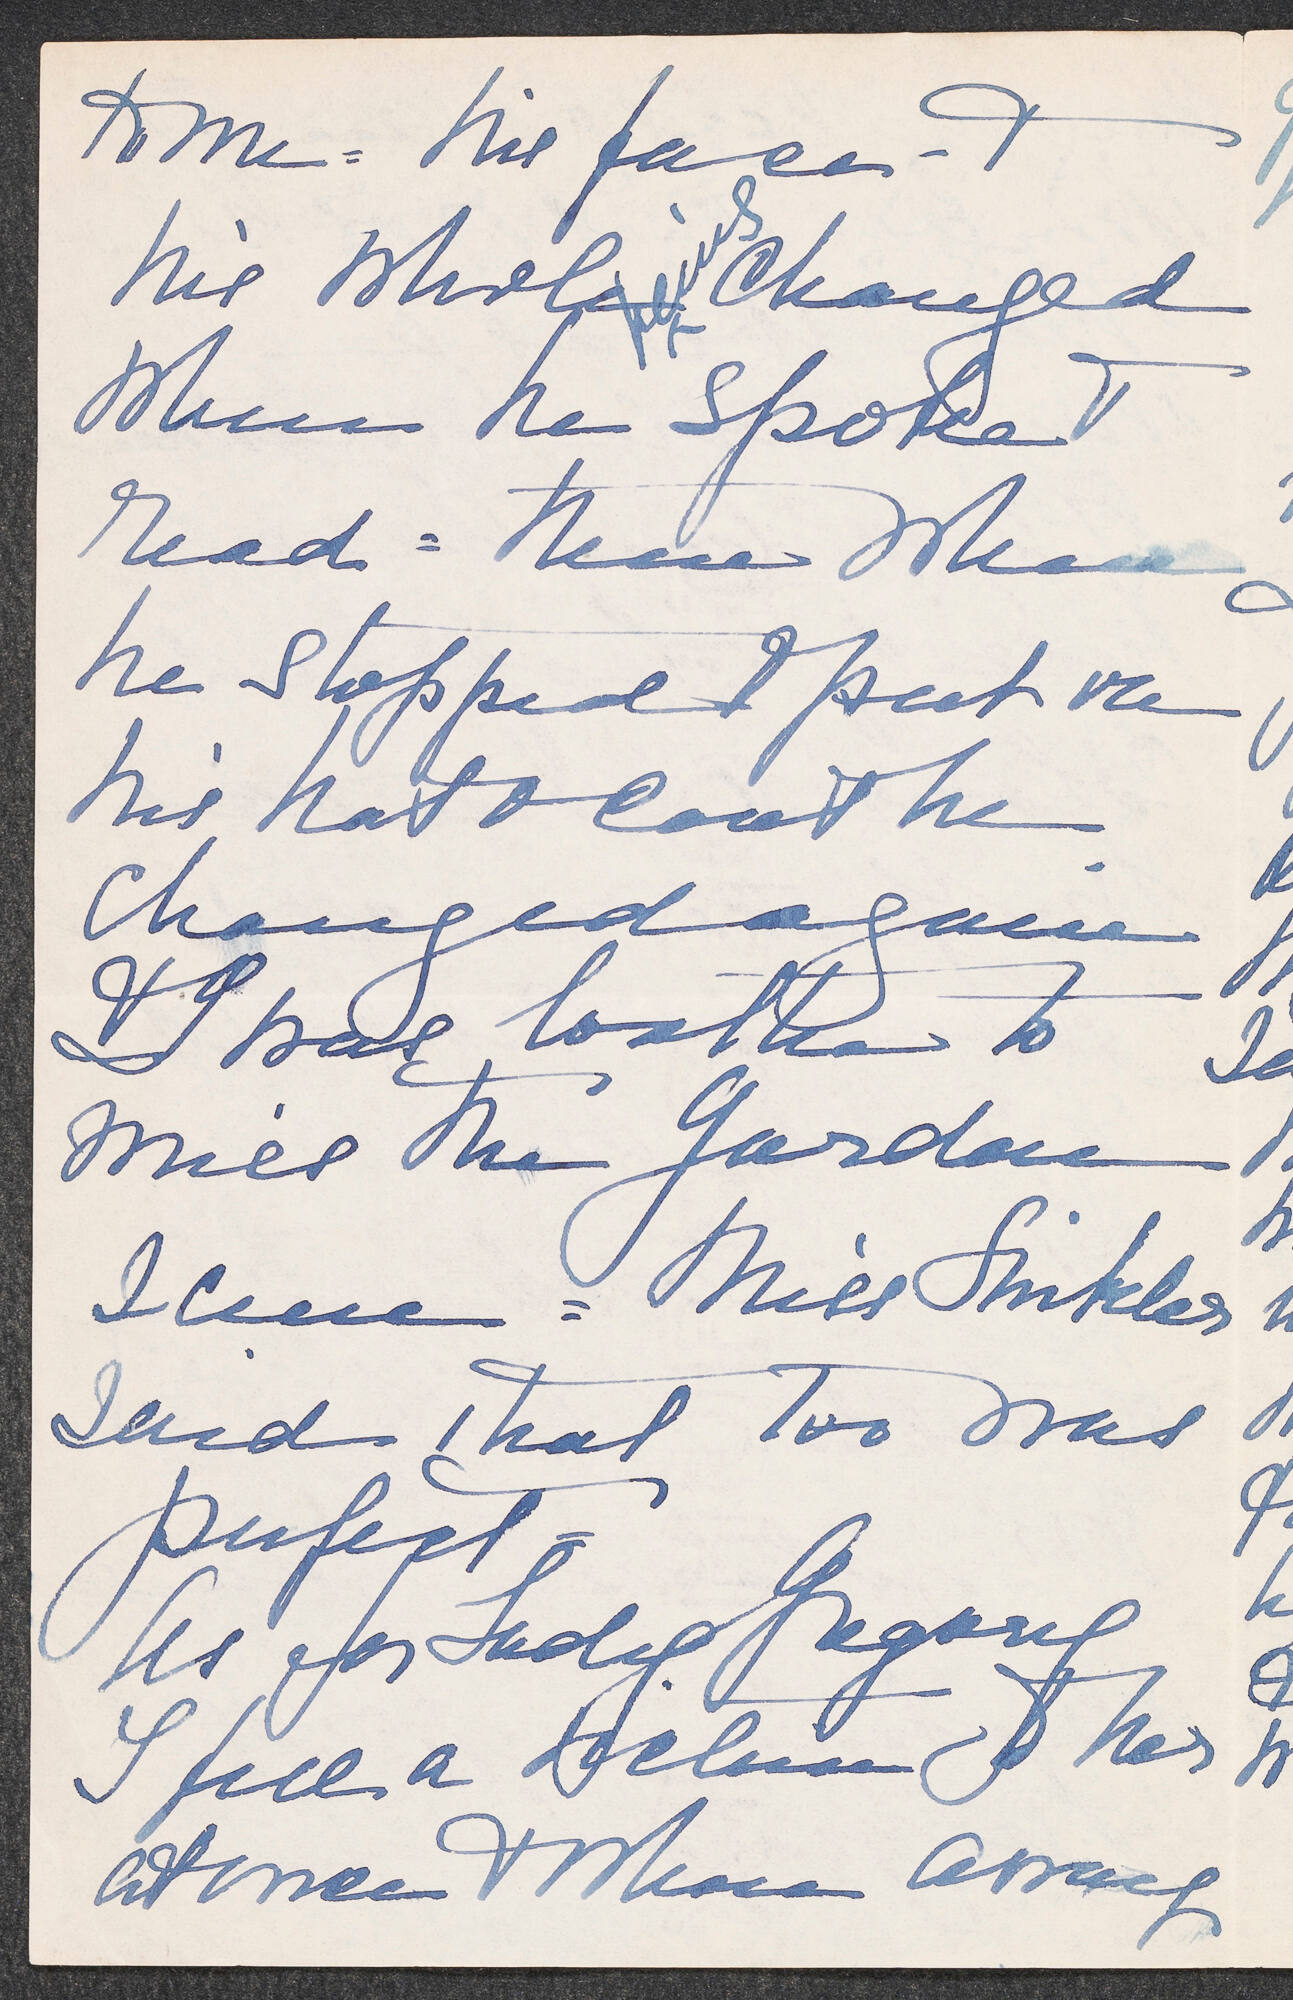 to me = his face - +
his whole physique changed
when he spoke +
read = then when
he stopped & put on
his hat & coat he
changed again
& I was loathe to
miss the Garden
Scene = Miss Sinkler
said that too was
perfect =
As for Lady Gregory
I fell a victim to her
at once & when among